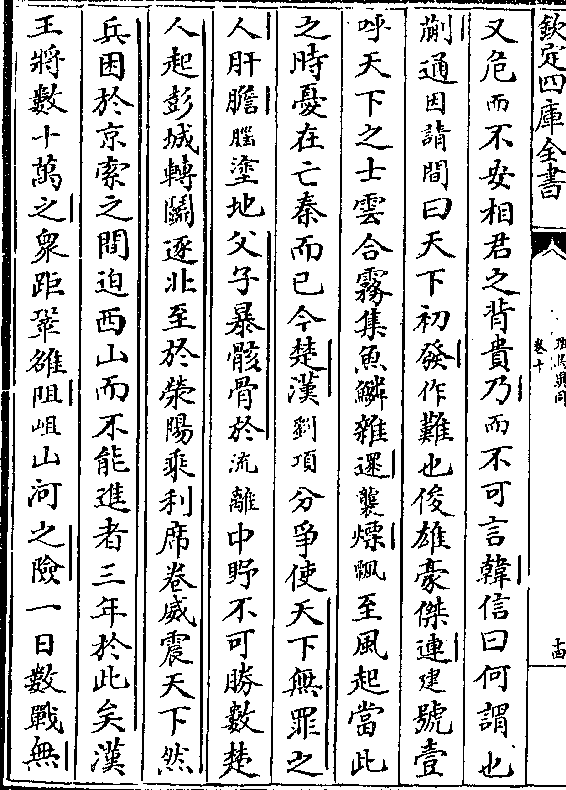 欽定四庫全書
卷十
十四
又危而不安相君之背貴乃而不可言韓信曰何謂也
蒯通因請間曰天下初發作難也俊雄豪傑連建號壹
呼天下之士雲合霧集魚鱗雜還襲熛飄至風起當此
之時憂在亡秦而已今楚漢劉項分爭使天下無罪之
人肝膽腦塗地父子暴骸骨於流離中野不可勝數楚
人起彭城轉鬭逐北至於滎陽乘利席卷威震天下然
兵困於京索之間迫西山而不能進者三年於此矣漢
王將數十萬之衆距鞏雒阻岨山河之險一日數戰無